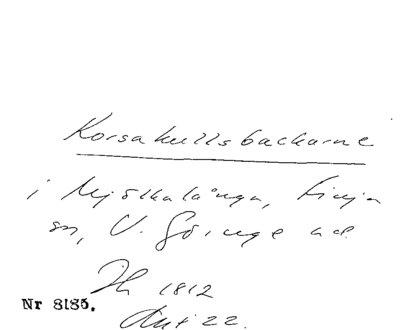 Korsakullsbackarne
i Mjölkalånga, Finja
sn, V. Göinge hd.
Th 1812
Nr 8185. Akt 22.